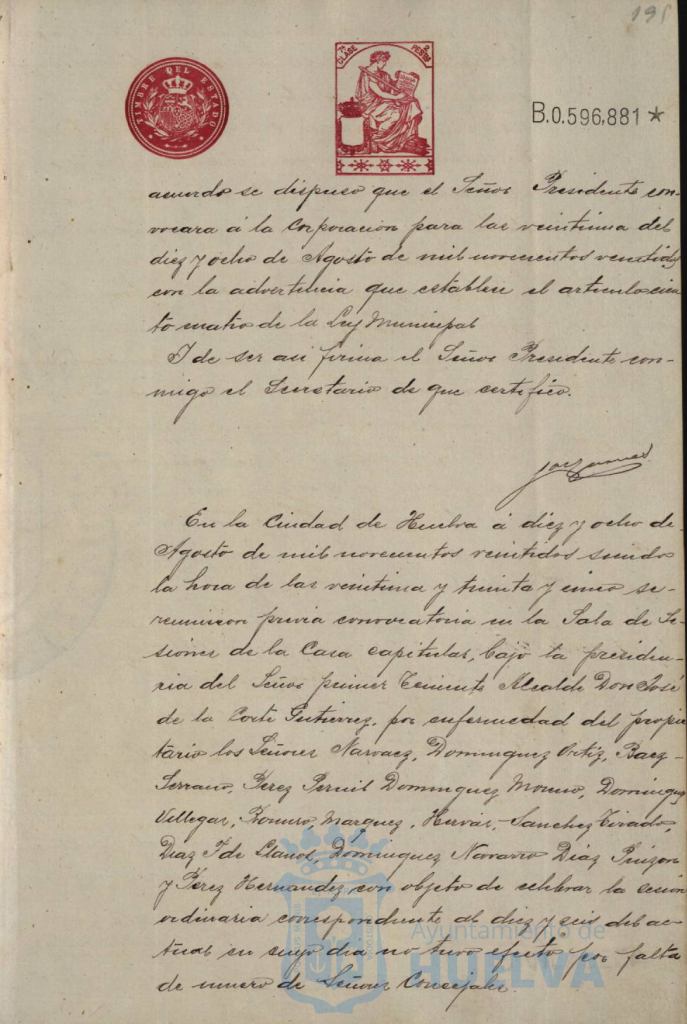 195
TIMBRE DEL ESTADO
7ª CLASE
2 PESTAS
B.0.596,881 *
acuerdo se dispuso que el Señor Presidente con-
vocara á la Corporacion para las veintiuna del
diez y ocho de Agosto de mil novecientos veintidos
con la advertencia que establece el articulo cien
to cuatro de la Ley Municipal
Y de ser asi firma el Señor Presidente con-
migo el Secretario de que certifico.
En la Ciudad de Huelva á diez y ocho de
Agosto de mil novecientos veintidos siendo
la hora de las veintiuna y treinta y cinco se
reunieron previa convocatoria en la Sala de Se-
siones de la Casa capitular, bajo la presiden-
cia del Señor primer Teniente Alcalde Don José
de la Corte Gutierrez, por enfermedad del propie
tario los Señores Narvaez, Dominguez Ortiz, Baez
Serrano, Perez Pernil Dominguez Moreno, Dominguez
Villegas, Romero, Marquez, Hervás, Sanchez Tirado,
Diaz F de Llanos, Dominguez Navarro Diaz Pinzon
y Perez Hernandez con objeto de celebrar la sesion
ordinaria correspondiente al diez y seis del ac-
tual en cuyo dia no tuvo efecto por falta
de numero de Señores Concejales.
Ayuntamiento de
HUELVA